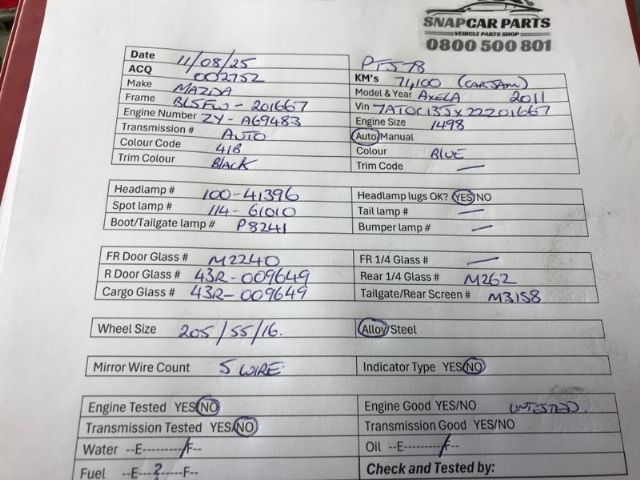 SNAPCAR PARTS
VEHICLE PARTS SHOP
0800 500 801
PTS-78
Date 11/08/25
ACQ 002752
KM's 74,100 (CARJAM)
Make MAZDA
Model & Year AXELA 2011
Frame BL5FW-201667
Vin 7AT0C13JX22201667
Engine Number ZY-A69483
Engine Size 1498
Transmission # AUTO
Auto/Manual
Colour Code 41B
Colour BLUE
Trim Colour BLACK
Trim Code —
Headlamp # 100-41396
Headlamp lugs OK? YES/NO
Spot lamp # 114-61010
Tail lamp # —
Boot/Tailgate lamp # P8241
Bumper lamp # —
FR Door Glass # M2240
FR 1/4 Glass # —
R Door Glass # 43R-009649
Rear 1/4 Glass # M262
Cargo Glass # 43R-009649
Tailgate/Rear Screen # M3158
Wheel Size 205/55/16.
Alloy/Steel
Mirror Wire Count 5 WIRE
Indicator Type YES/NO
Engine Tested YES/NO
Engine Good YES/NO UNTESTED.
Transmission Tested YES/NO
Transmission Good YES/NO
Water --E--------/F--
Oil --E--------/F--
Fuel --E---?-----F--
Check and Tested by: